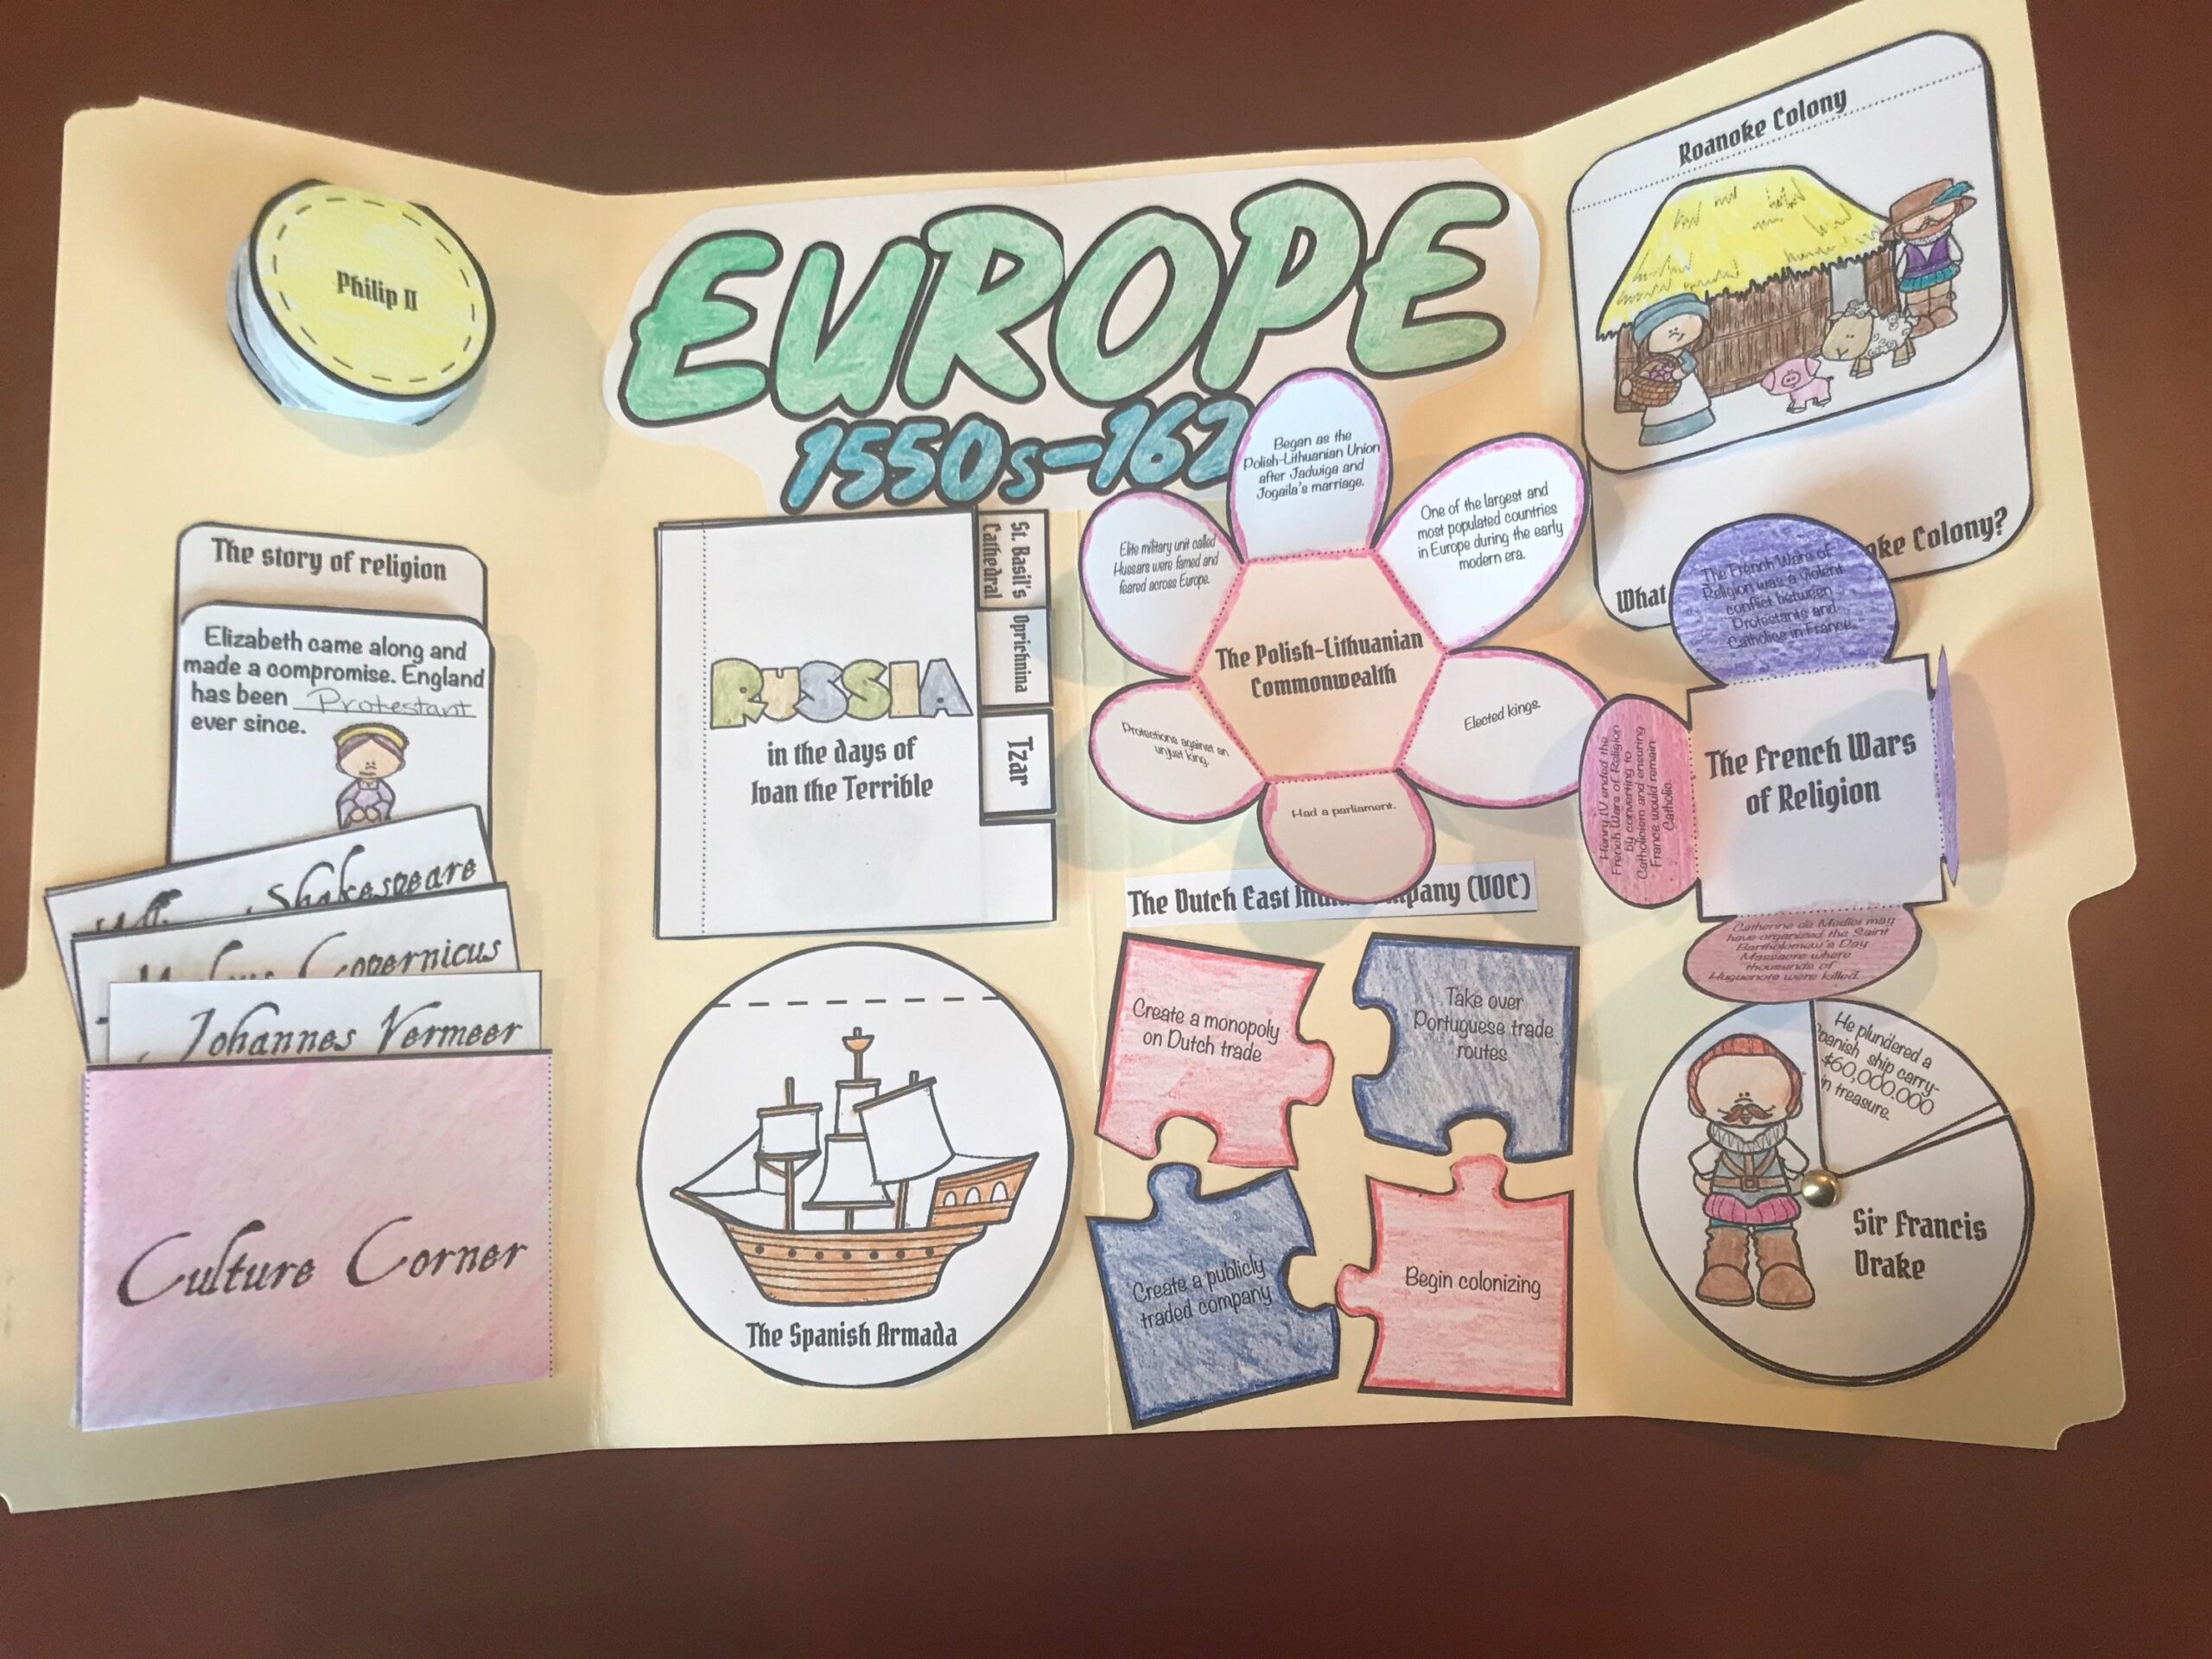 EUROPE
1550s-162
Philip II
The story of religion
Elizabeth came along and
made a compromise. England
has been Protestant
ever since.
Shakespeare
Copernicus
Johannes Vermeer
Culture Corner
RUSSIA
in the days of
Ivan the Terrible
St. Basil's
Cathedral
Oprichnina
Tzar
The Spanish Armada
Began as the
Polish-Lithuanian Union
after Jadwiga and
Jogaila's marriage.
One of the largest and
most populated countries
in Europe during the early
modern era.
Elite military unit called
Hussars were famed and
feared across Europe.
The Polish-Lithuanian
Commonwealth
Elected kings.
Protections against an
unjust king.
Had a parliament.
The Dutch East In mpany (VOC)
Create a monopoly
on Dutch trade
Take over
Portuguese trade
routes
Create a publicly
traded company
Begin colonizing
Roanoke Colony
What oke Colony?
The French Wars of
Religion was a violent
conflict between
Protestants and
Catholics in France.
The French Wars
of Religion
Henry IV ended the
French Wars of Religion
by converting to
Catholicism and ensuring
France would remain
Catholic.
Catherine da Medici may
have organized the Saint
Bartholomew's Day
Massacre where
thousands of
Huguenots were killed.
He plundered a
panish ship carry-
$60,000,000
in treasure.
Sir Francis
Drake